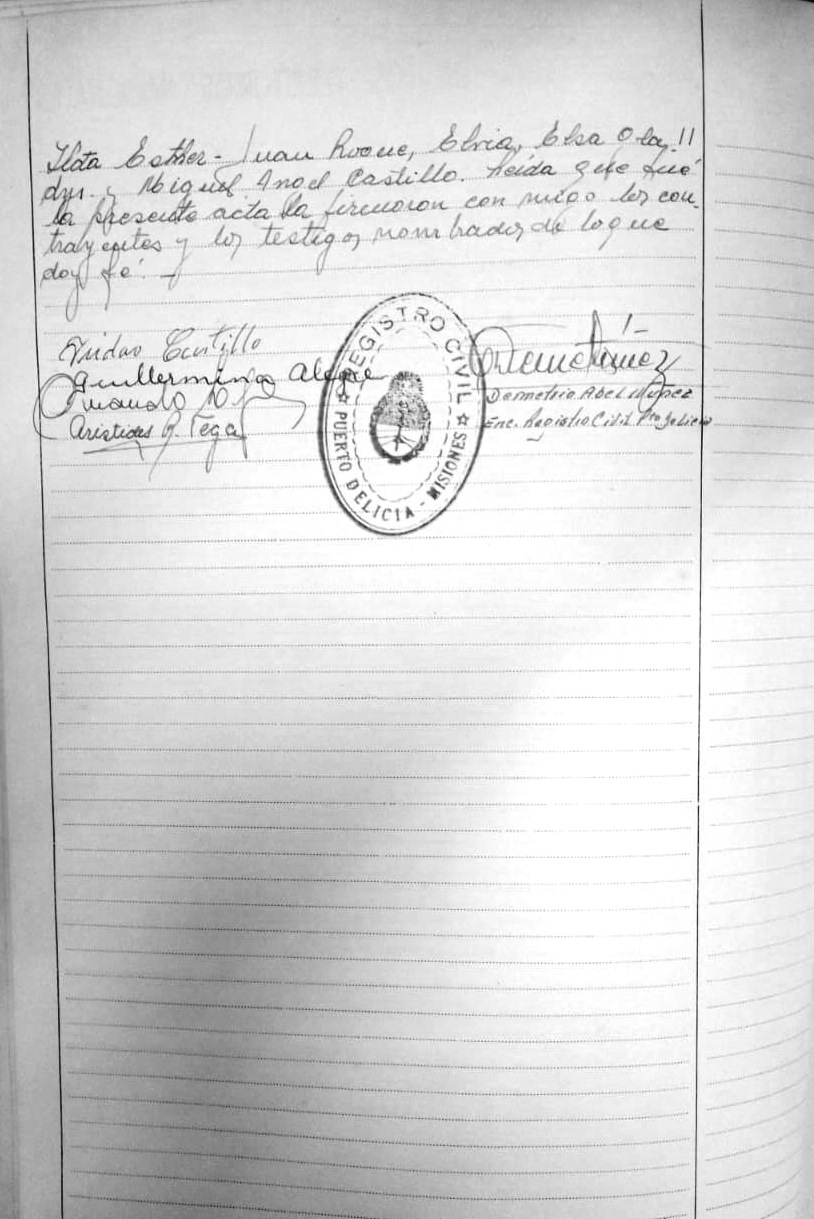 Esther - Juan Roque, Elvia, Elsa
y Miguel Angel Castillo. Leida que fué
la presente acta la firmaron con migo los con-
trayentes y los testigos nombrados de lo que
doy fé. -
Castillo
Guillermina Alegre
Aristides
REGISTRO CIVIL
PUERTO DELICIA - MISIONES
Demetrio Abel
Enc. Registro Civil Pto Delicia